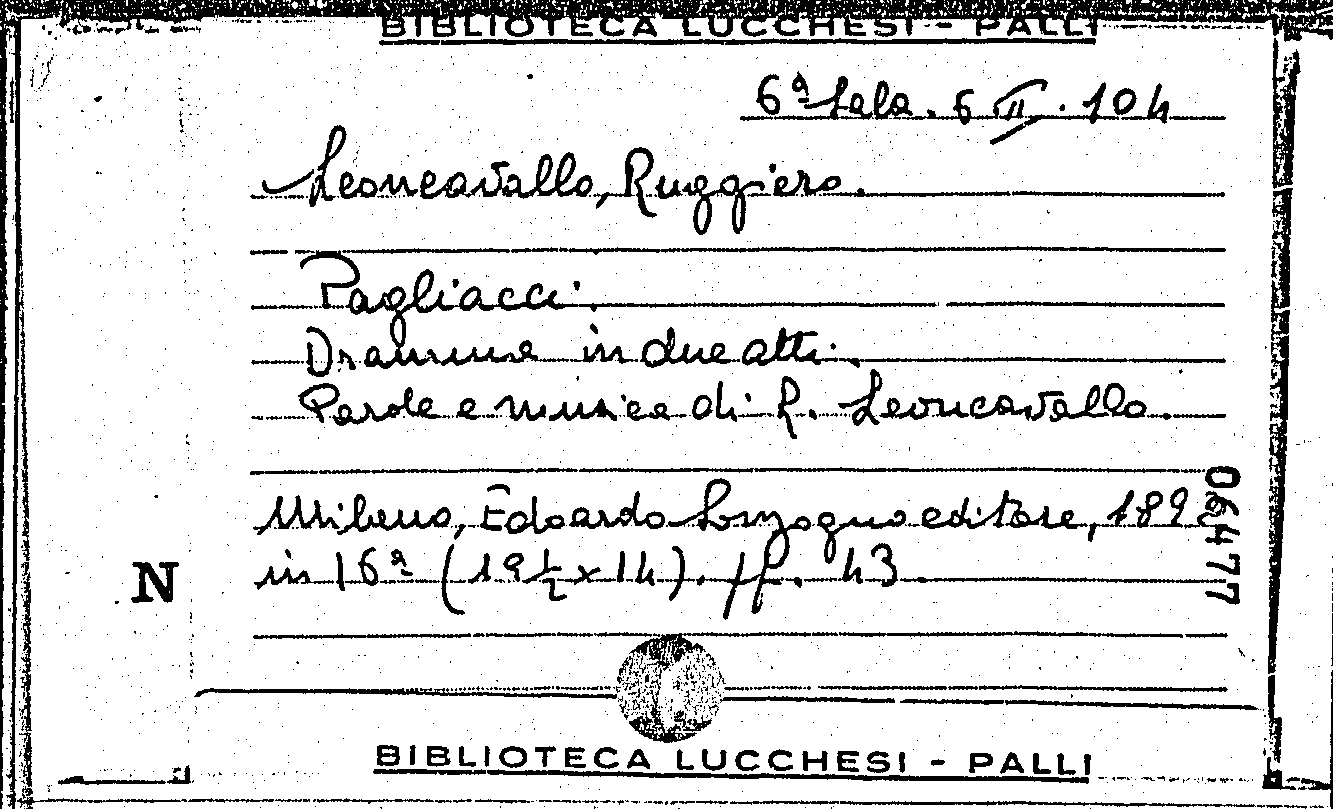 BIBLIOTECA LUCCHESI - PALLI
6ª Sala. 6 III. 104
Leoncavallo, Ruggiero.
Pagliacci.
Dramma in due atti.
Parole e musica di R. Leoncavallo.
Milano, Edoardo Sonzogno editore, 1892
in 16º (19½ x 14). pp. 43.
06477
N
BIBLIOTECA LUCCHESI - PALLI